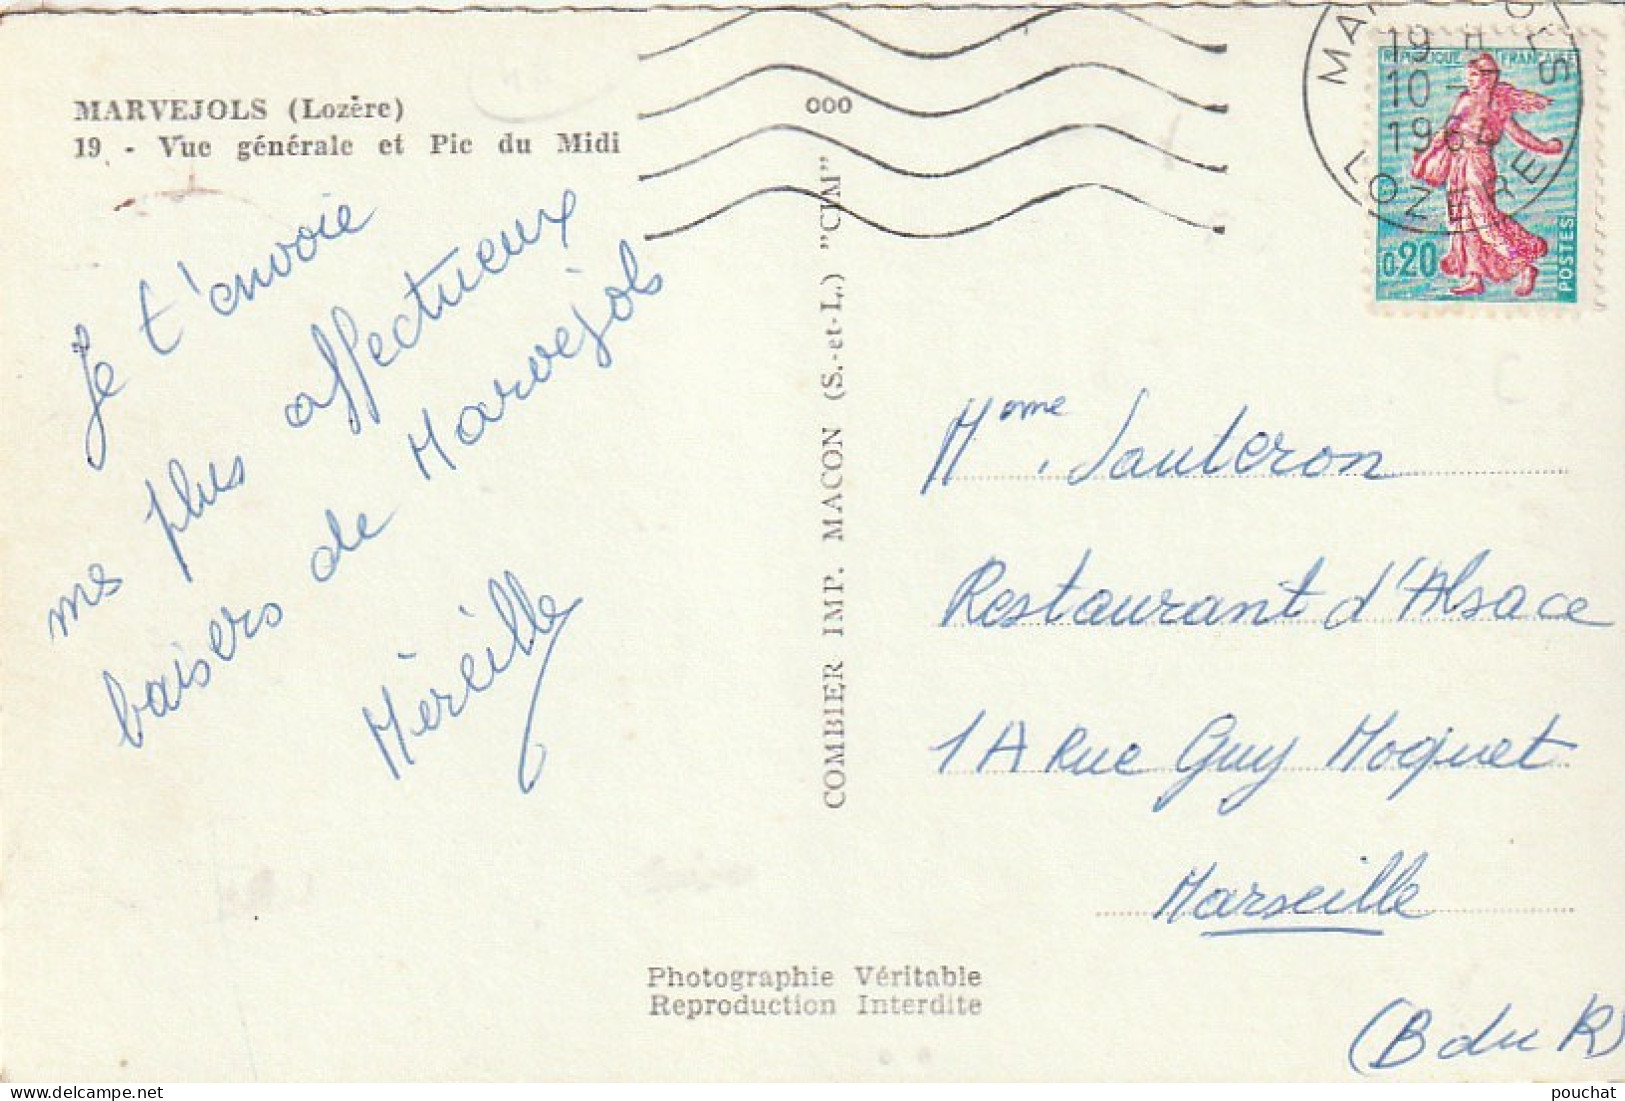 MARVEJOLS (Lozère)
19 - Vue générale et Pic du Midi
Je t'envoie
mes plus affectueux
baisers de Marvejols
Mireille
COMBIER IMP. MACON (S.-et-L.) "CIM"
000
19 H
10 - 7
1964
LOZERE
REPUBLIQUE FRANÇAISE
0,20
POSTES
Mme Sauteron
Restaurant d'Alsace
1A Rue Guy Moquet
Marseille
(B du R)
Photographie Véritable
Reproduction Interdite
www.delcampe.net
pouchat